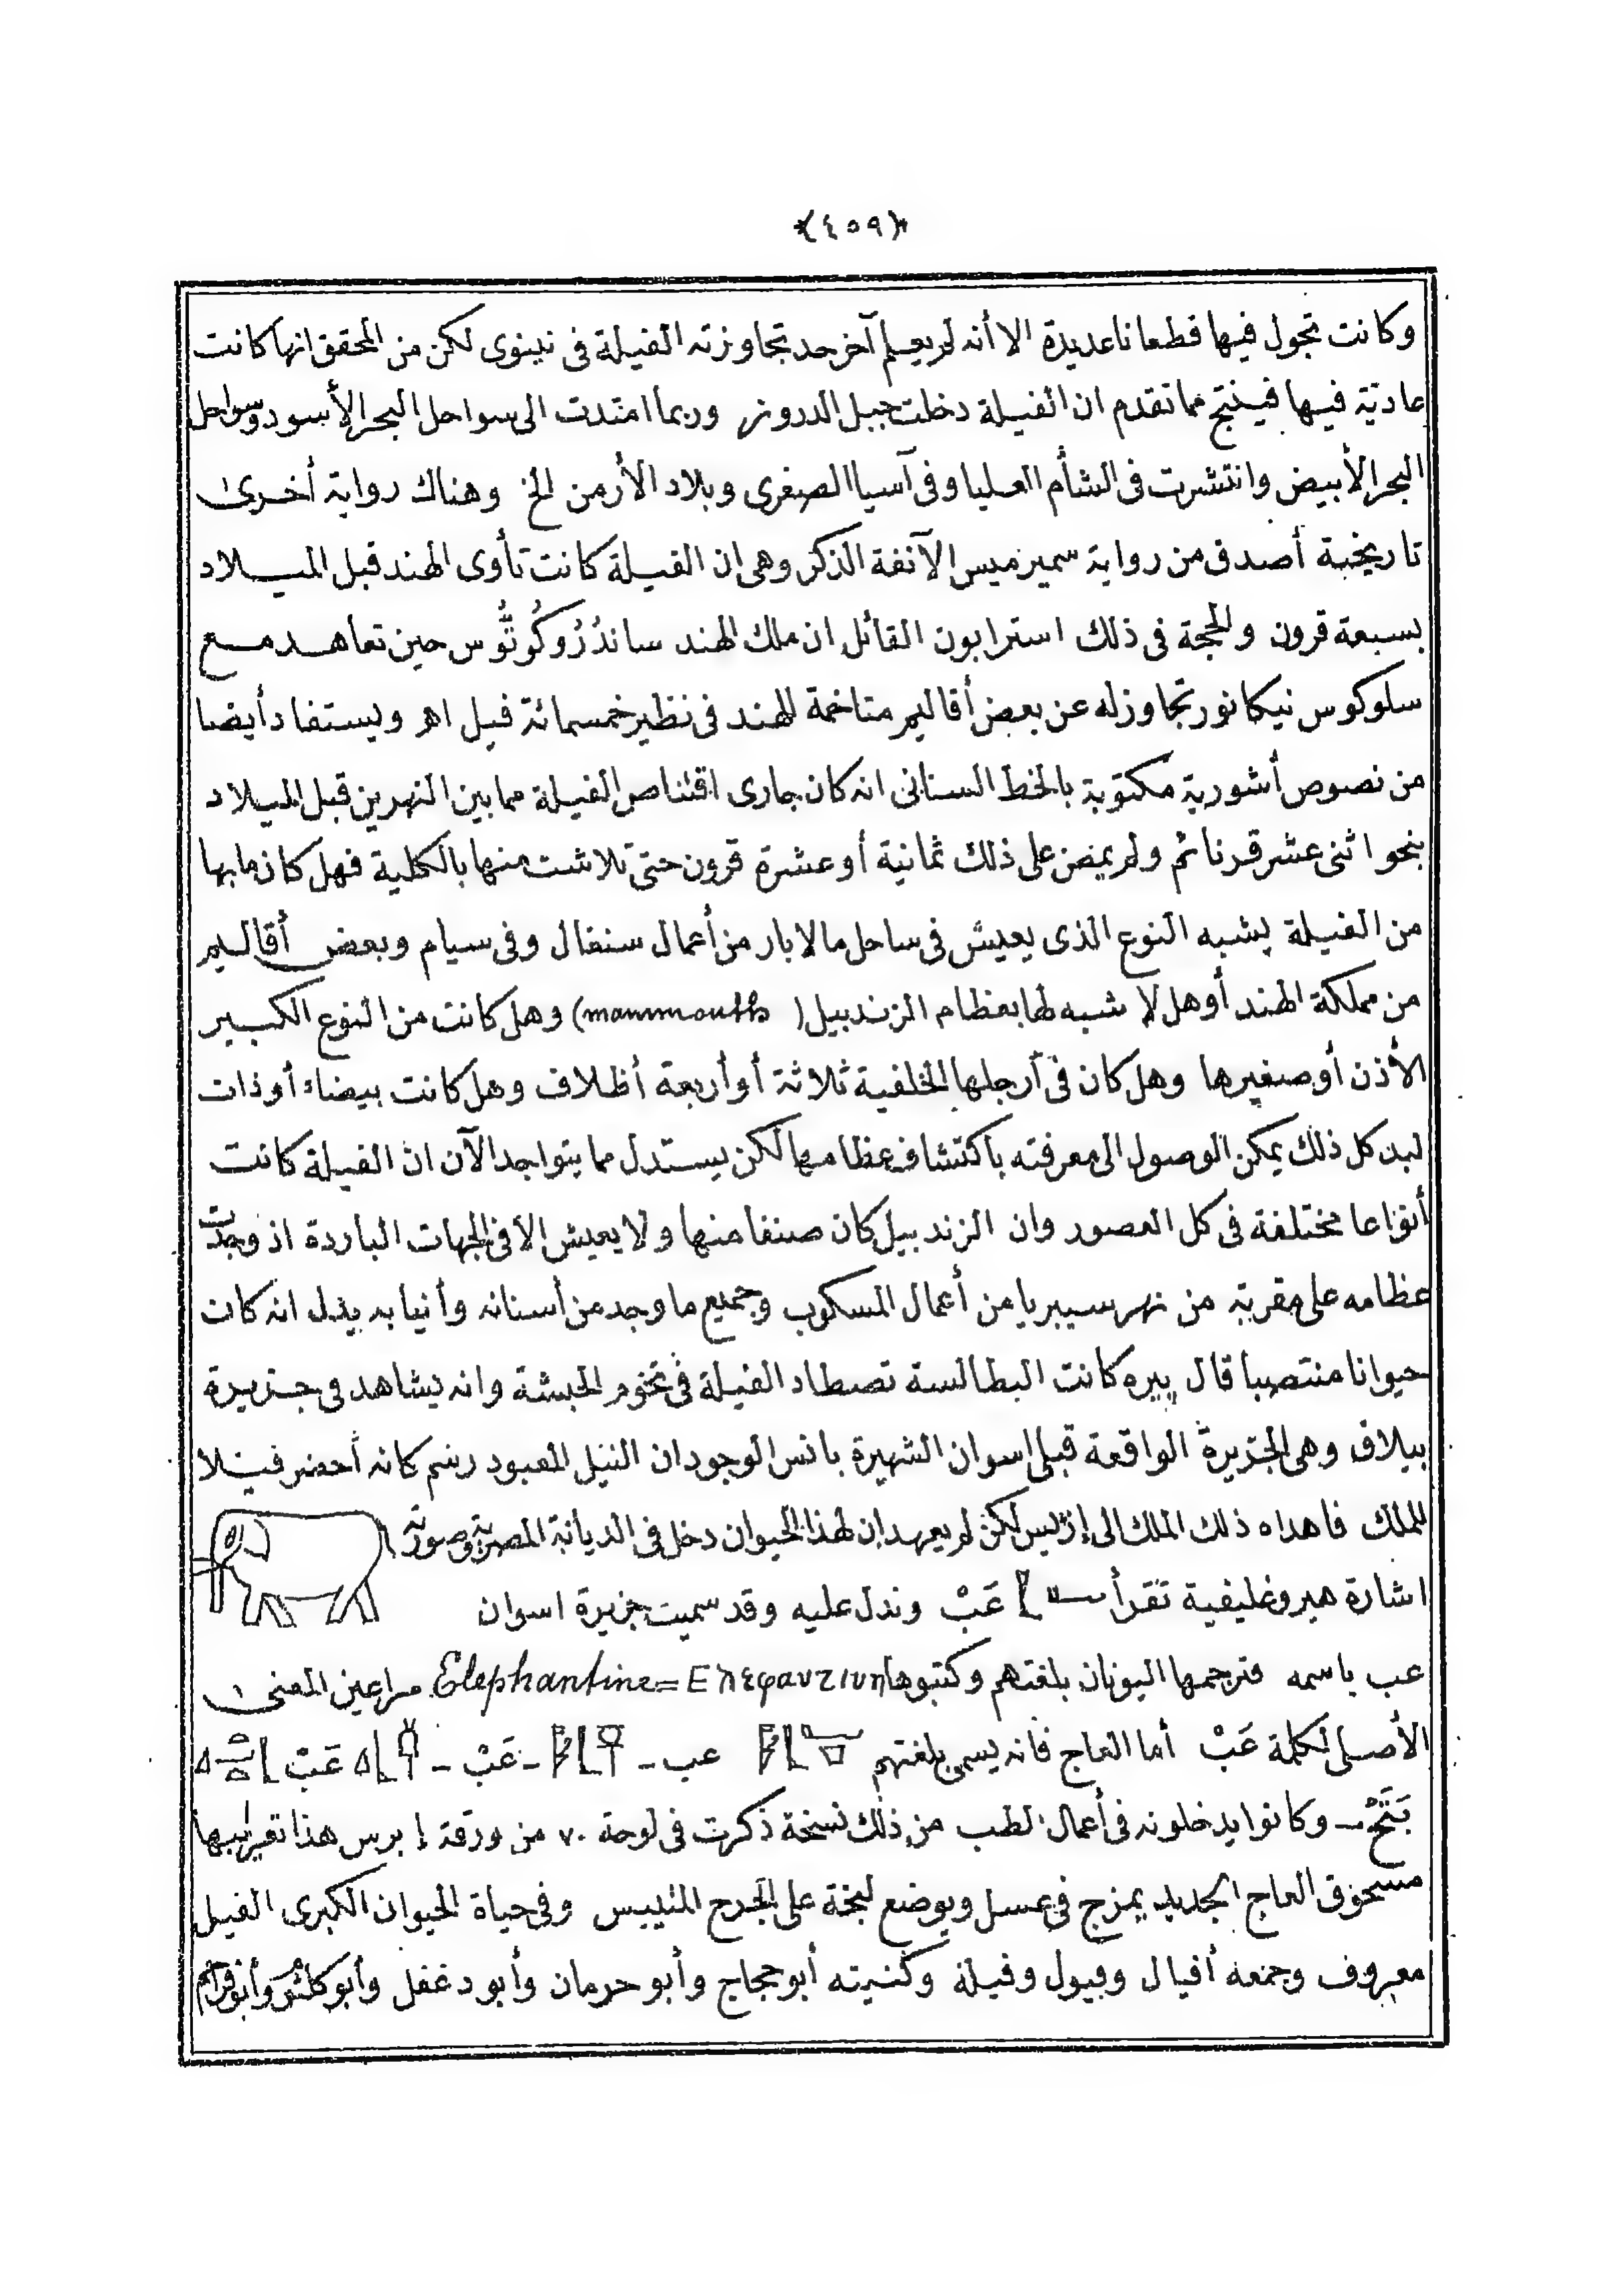 ﴿٤٥٩﴾
وكانت تجول فيها قطعانا عديدة الا أنه لم يعلم آخر حد تجاوزته الفيلة فى نينوى لكن من المحقق انها كانت
عادتية فيها فينتج مما تقدم ان الفيلة دخلت جبل الدروز وربما امتدت الى سواحل البحر الأسود وسواحل
البحر الأبيض وانتشرت فى الشأم العليا وفى آسيا الصغرى وبلاد الأرمن الخ وهناك رواية أخرى
تاريخية أصدق من رواية سميرميس الآنفة الذكر وهى ان الفيلة كانت تأوى الهند قبل الميلاد
بسبعة قرون والحجة فى ذلك استرابون القائل ان ملك الهند ساندُرُوكُوتُّوس حين تعاهد مع
سلوكوس نيكانور تجاوز له عن بعض أقاليم متاخمة للهند فى نظير خمسمائة فيل اهر ويستفاد أيضا
من نصوص أشورية مكتوبة بالخط السنانى انه كان جارى اقتناص الفيلة مما بين النهرين قبل الميلاد
بنحو اثنى عشر قرنا ثم ولم يمض على ذلك ثمانية أو عشرة قرون حتى تلاشت منها بالكلية فهل كان ما بها
من الفيلة يشبه النوع الذى يعيش فى ساحل مالابار من أعمال سنغال وفى سيام وبعض أقاليم
من مملكة الهند أو هل لا شبه لها بعظام الزندبيل (mammouth) وهل كانت من النوع الكبير
الأذن أو صغيرها وهل كان فى أرجلها الخلفية ثلاثة أو أربعة أظلاف وهل كانت بيضاء أو ذات
لبد كل ذلك يمكن الوصول الى معرفته باكتشاف عظامها لكن يستدل مما يتواجد الآن ان الفيلة كانت
أنواعا مختلفة فى كل العصور وان الزندبيل كان صنفا منها ولا يعيش الا فى الجهات الباردة اذ وجدت
عظامه على مقربة من نهر سيبريا من أعمال المسكوب وجميع ما وجد من أسنانه وأنيابه يدل انه كان
حيوانا منتصبا قال بيره كانت البطالسة تصطاد الفيلة فى تخوم الحبشة وانه يشاهد فى جزيرة
بيلاق وهى الجزيرة الواقعة قبلى اسوان الشهيرة بانس الوجود ان النيل المعبود رسم كانه أحضر فيلا
للملك فاهداه ذلك الملك الى إزيس لكن لم يعهد ان لهذا الحيوان دخل فى الديانة المصرية وصورته
اشارة هيروغليفية تقرأ عَبْ وتدل عليه وقد سميت جزيرة اسوان
عب باسمه فترجمها اليونان بلغتهم وكتبوها Elephantine=Ελεφαντινη مراعين المعنى
الأصلى لكلمة عَبْ أما العاج فانه يسمى بلغتهم عب ـ ـ عَبْ ـ عَبْ
بَتَحْ ـ وكانوا يدخلونه فى أعمال الطب من ذلك نسخة ذكرت فى لوحة ٧٠ من ورقة إبرس هذا تعريبها
مسحوق العاج الجديد يمزج فى عسل ويوضع لبخة على الجرح المتيبس وفى حياة الحيوان الكبرى الفيل
معروف وجمعه أفيال وفيول وفيلة وكنيته أبو حجاج وأبو حرمان وأبو دغفل وأبو كلثوم وأبو مزاحم